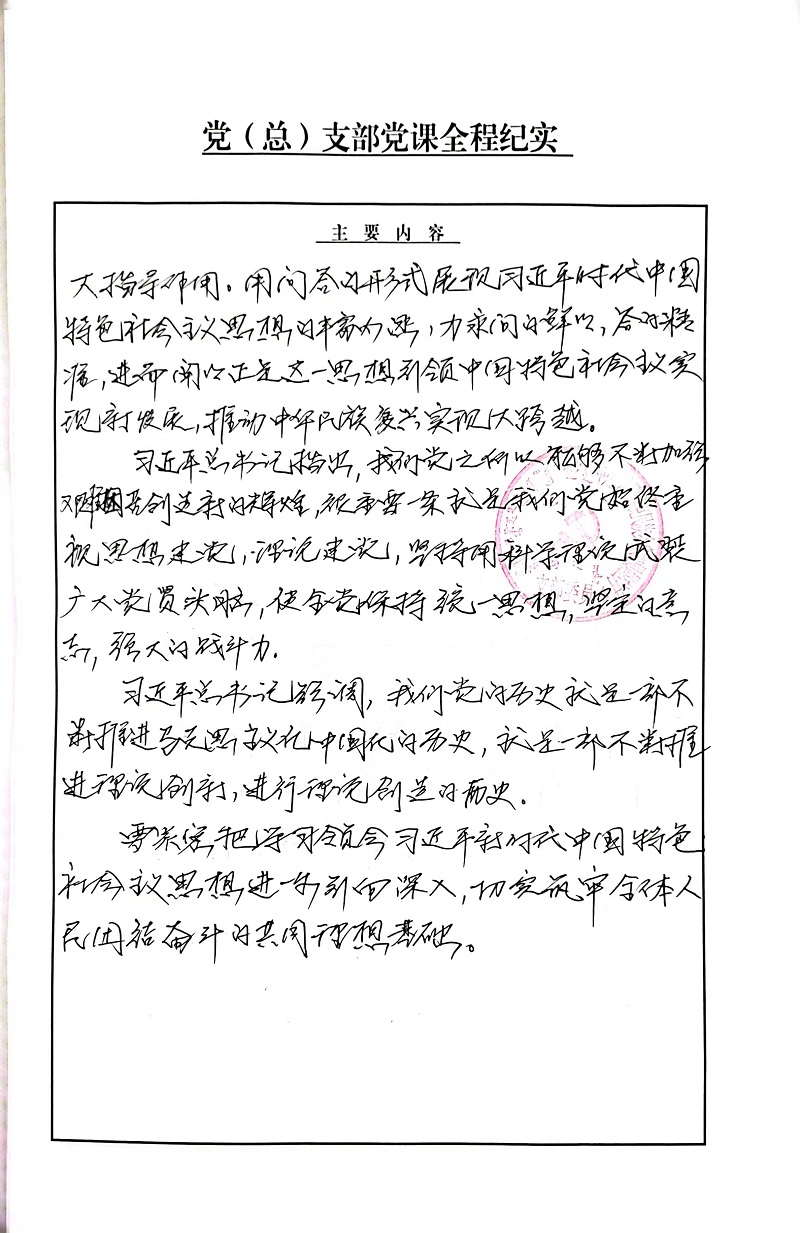 党（总）支部党课全程纪实
主要内容
大指导作用。用问答的形式展现习近平时代中国
特色社会主义思想的丰富内涵，力求问的鲜明，答的精
准，进而阐明正是这一思想引领中国特色社会主义实
现新发展，推动中华民族复兴实现大跨越。
习近平总书记指出，我们党之所以能够不断加强
创造新的辉煌，很重要一条就是我们党始终重
视思想建党，理论建党，坚持用科学理论武装
广大党员头脑，使全党保持统一思想，坚定的意
志，强大的战斗力.
习近平总书记强调，我们党的历史就是一部不
断推进马克思主义化中国化的历史，就是一部不断推
进理论创新，进行理论创造的历史.
把学习领会习近平新时代中国特色
社会主义思想进一步引向深入，切实筑牢全体人
民团结奋斗的共同理想基础。